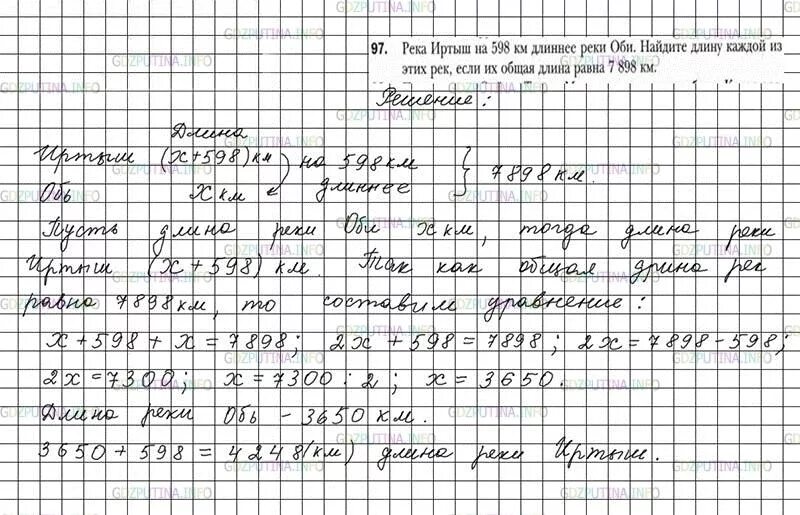 97. Река Иртыш на 598 км длиннее реки Оби. Найдите длину каждой из
этих рек, если их общая длина равна 7 898 км.
Решение:
Длина
Иртыш (х+598) км на 598 км
Обь х км длиннее } 7898 км.
Пусть длина реки Оби х км, тогда длина реки
Иртыш (х+598) км. Так как общая длина рек
равна 7898 км, то составим уравнение:
х+598+х=7898; 2х+598=7898; 2х=7898-598;
2х=7300; х=7300:2; х=3650.
Длина реки Обь - 3650 км.
3650+598=4248(км) длина реки Иртыш.
GDZPUTINA.INFO